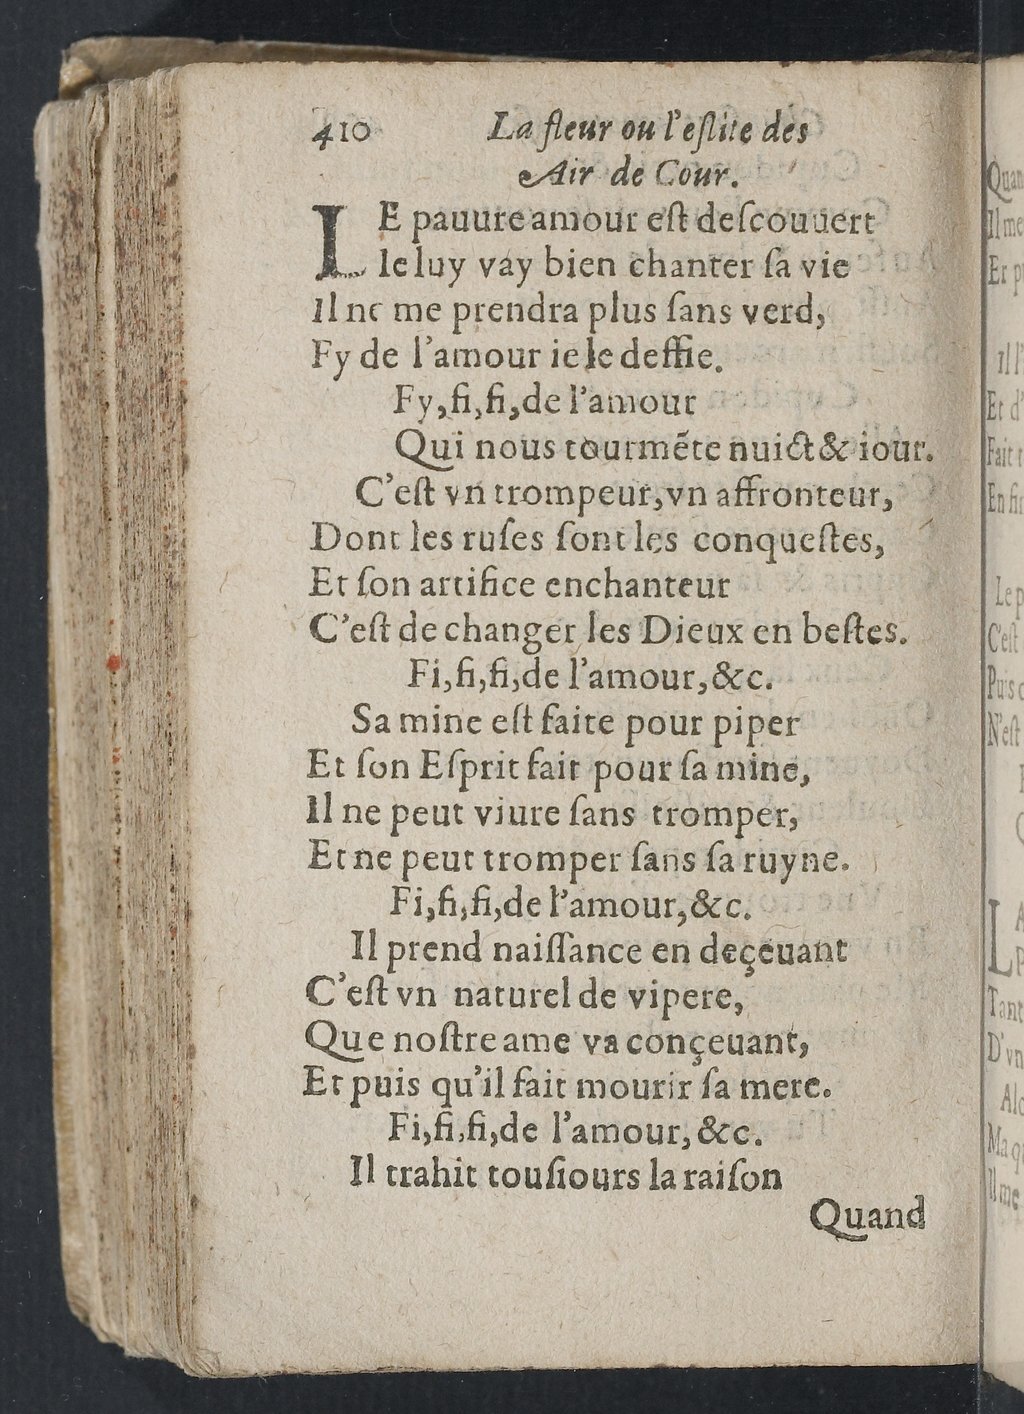 410 La fleur ou l'eſlite des
Air de Cour.
LE pauure amour eſt deſcouuert
Ie luy vay bien chanter ſa vie
Il ne me prendra plus ſans verd,
Fy de l'amour ie le deffie.
Fy, fi, fi, de l'amour
Qui nous tourmẽte nuict & iour.
C'eſt vn trompeur, vn affronteur,
Dont les ruſes ſont les conqueſtes,
Et ſon artifice enchanteur
C'eſt de changer les Dieux en beſtes.
Fi, fi, fi, de l'amour, &c.
Sa mine eſt faite pour piper
Et ſon Eſprit fait pour ſa mine,
Il ne peut viure ſans tromper,
Et ne peut tromper ſans ſa ruyne.
Fi, fi, fi, de l'amour, &c.
Il prend naiſſance en deçeuant
C'eſt vn naturel de vipere,
Que noſtre ame va conçeuant,
Et puis qu'il fait mourir ſa mere.
Fi, fi, fi, de l'amour, &c.
Il trahit touſiours la raiſon
Quand